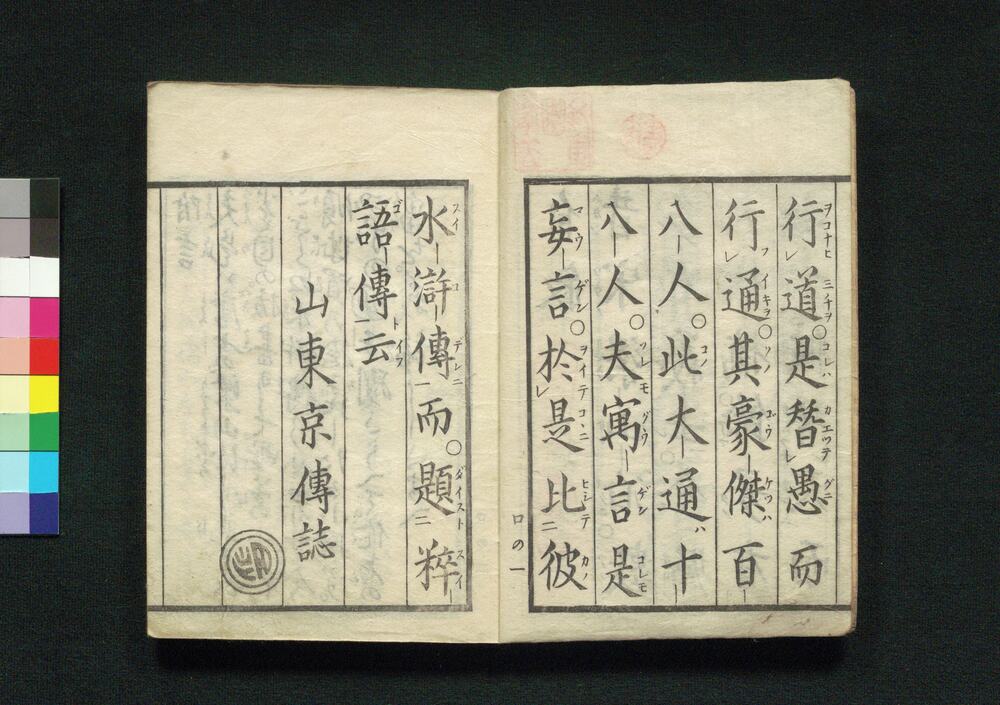 行道○是替愚而
行通○其豪傑百
八人○此大通十
八人○夫寓言是
妄言○於是比彼
口の一
水滸傳而○題粹
語傳云
山東京傳誌